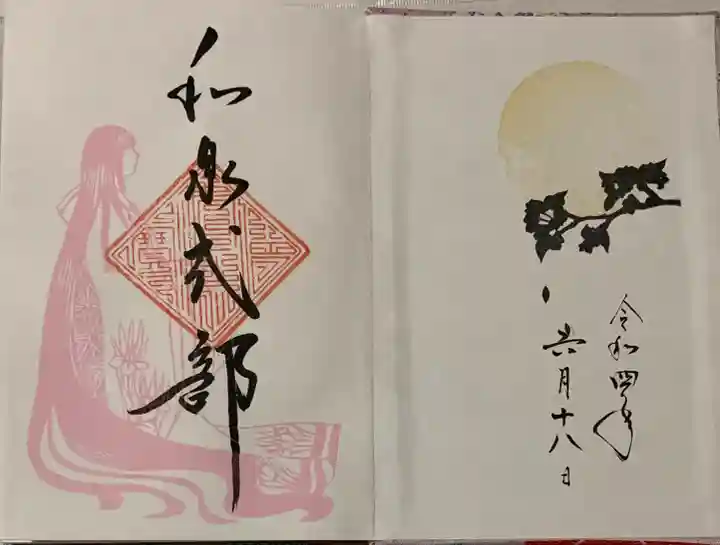 和泉式部
令和四年
六月十八日